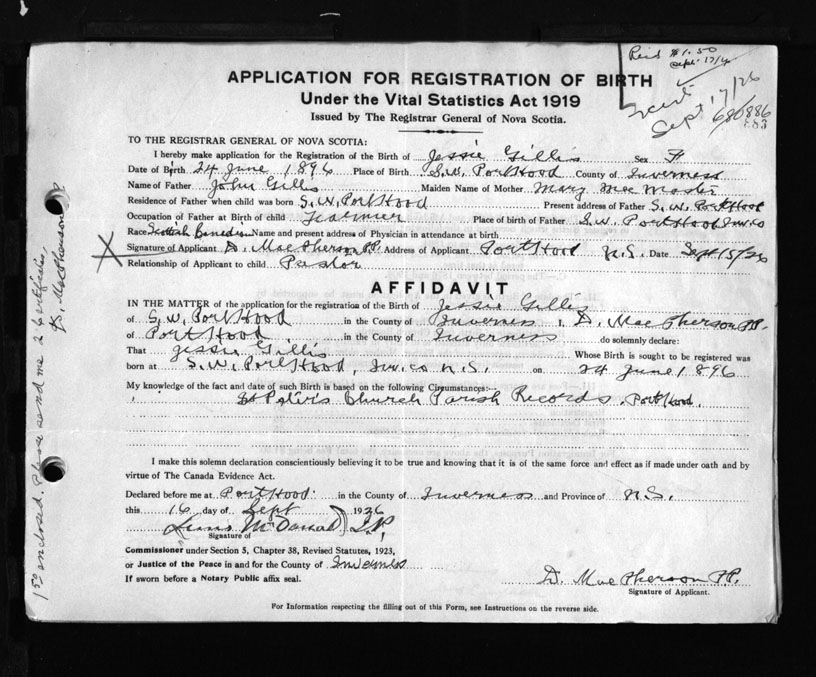 Reid $1.50
Sept 17/26
Sept 17/26
680886
883
APPLICATION FOR REGISTRATION OF BIRTH
Under the Vital Statistics Act 1919
Issued by The Registrar General of Nova Scotia.
TO THE REGISTRAR GENERAL OF NOVA SCOTIA:
I hereby make application for the Registration of the Birth of Jessie Gillis Sex F
Date of Birth 24 June 1896 Place of Birth S.W. Port Hood County of Inverness
Name of Father John Gillis Maiden Name of Mother Mary Mac Master
Residence of Father when child was born S.W. Port Hood Present address of Father S.W. Port Hood
Occupation of Father at Birth of child Farmer Place of birth of Father S.W. Port Hood Inv. Co
Race Scottish Canadian Name and present address of Physician in attendance at birth
X Signature of Applicant D. MacPherson P.P. Address of Applicant Port Hood N.S. Date Sept 15/26
Relationship of Applicant to child Pastor
AFFIDAVIT
IN THE MATTER of the application for the registration of the Birth of Jessie Gillis
of S.W. Port Hood in the County of Inverness I, D. MacPherson P.P.
of Port Hood in the County of Inverness do solemnly declare:
That Jessie Gillis Whose Birth is sought to be registered was
born at S.W. Port Hood, Inv. Co. N.S. on 24 June 1896
My knowledge of the fact and date of such Birth is based on the following Circumstances:—
St Peter's Church Parish Records, Port Hood.
I make this solemn declaration conscientiously believing it to be true and knowing that it is of the same force and effect as if made under oath and by
virtue of The Canada Evidence Act.
Declared before me at Port Hood in the County of Inverness and Province of N.S.
this 16 day of Sept 1926
McDonald J.P.
Signature of
Commissioner under Section 5, Chapter 38, Revised Statutes, 1923,
or Justice of the Peace in and for the County of Inverness
If sworn before a Notary Public affix seal.
D. MacPherson P.P.
Signature of Applicant.
For Information respecting the filling out of this Form, see Instructions on the reverse side.
1.50 enclosed. Please send me 2 Certificates.
D. MacPherson P.P.